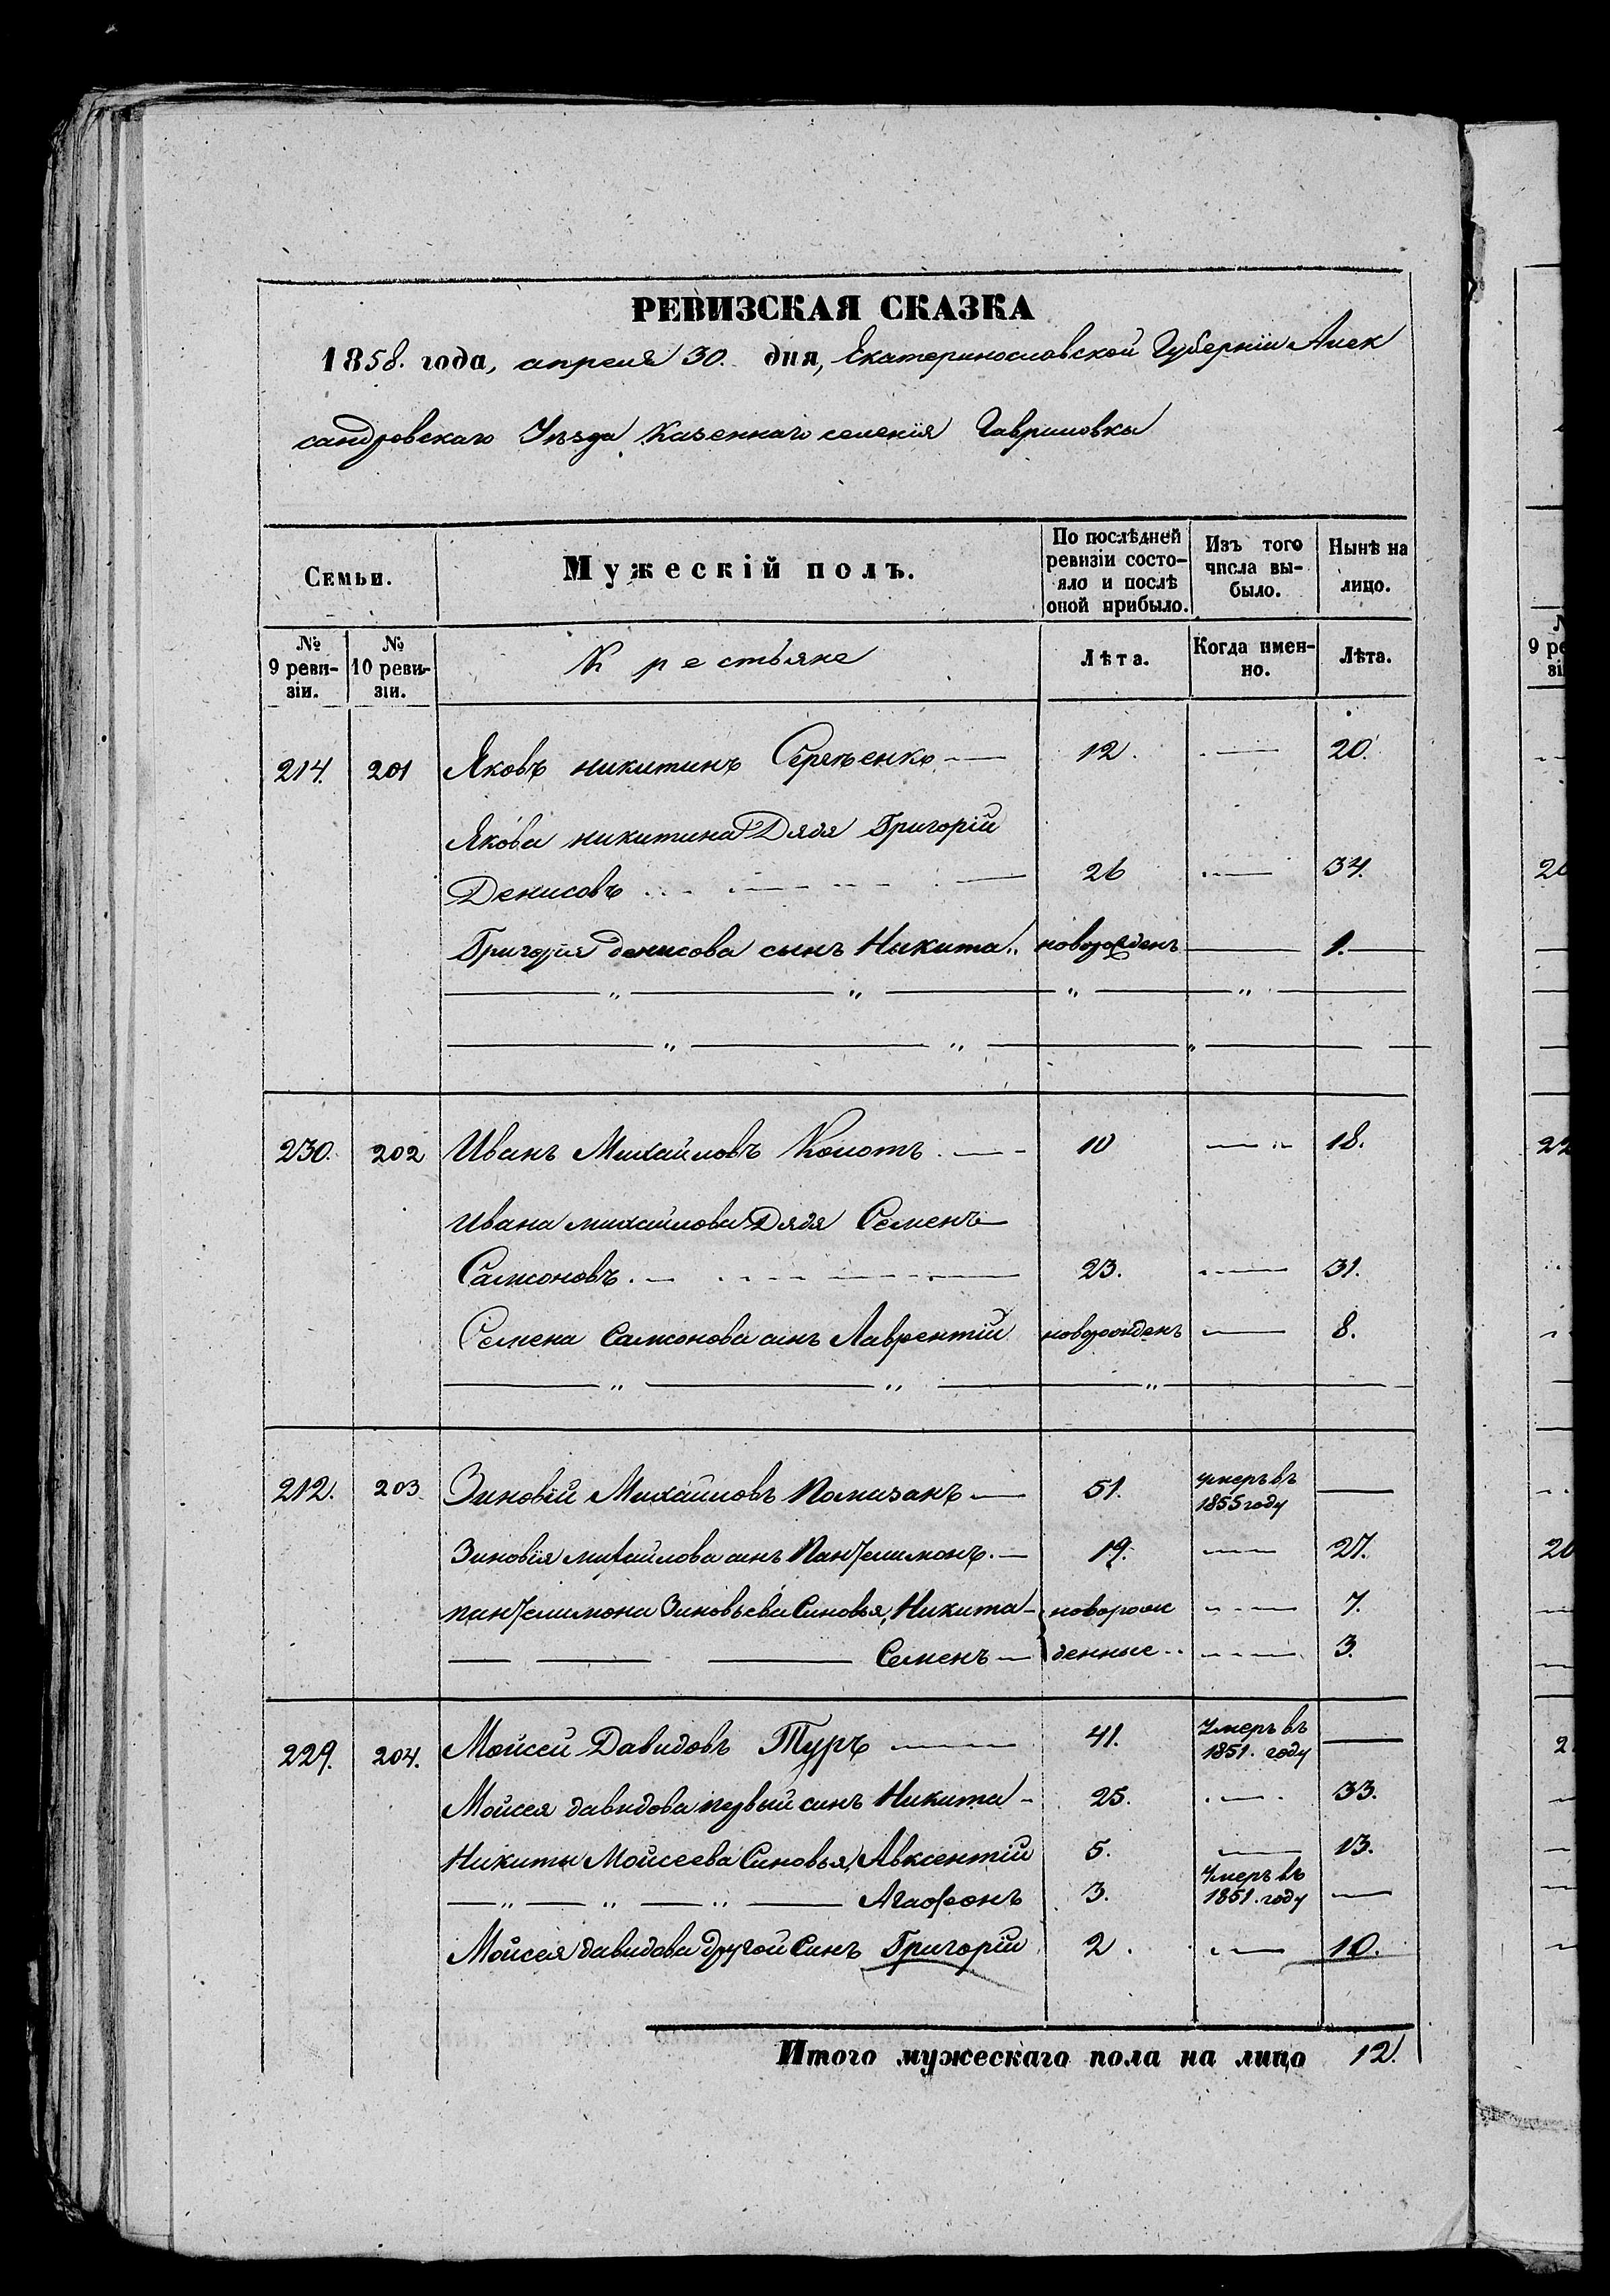 РЕВИЗСКАЯ СКАЗКА
1858. года, апреля 30. дня, Екатеринославской Губерніи Алек
сандровскаго Уѣзда Казеннаго селенія Гавриловки
Семьи.
Мужескій полъ.
По послѣдней ревизіи состо-
яло и послѣ
оной прибыло.
Изъ того
числа вы-
было.
Нынѣ на
лицо.
№ 9 реви-
зіи.
№ 10 реви-
зіи.
Крестьяне
Лѣта.
Когда имен-
но.
Лѣта.
214. 201 Яковъ никитинъ 12. — 20.
Якова никитина Дядя Григорій
Денисовъ 26 — 34.
Григорія денисова сынъ Никита.. новорожденъ — 1.
230. 202 Иванъ Михайловъ Коломъ 10 — 18.
Ивана михайлова Дядя Семенъ
Самсоновъ 23. — 31.
Семена Самсонова синъ Лаврентій новорожденъ — 8.
212. 203 Зиновій Михайловъ Помазанъ — 51. умеръ въ
1855 году —
Зиновія михайлова синъ Пантелимонъ. — 19. — 27.
пантелимона Зиновьева Синовья, Никита — новорож — 7.
Семенъ — денные — 3.
229. 204. Мойсей Давидовъ Туръ — 41. Умеръ въ
1851. году —
Мойсея давидова первый синъ Никита — 25. — 33.
Никиты Мойсеева Синовья, Авксентій 5. — 13.
Агафонъ 3. Умеръ въ
1851. году —
Мойсея давидова другой Синъ Григорій 2. — 10.
Итого мужескаго пола на лицо 12.
9 ре
зі